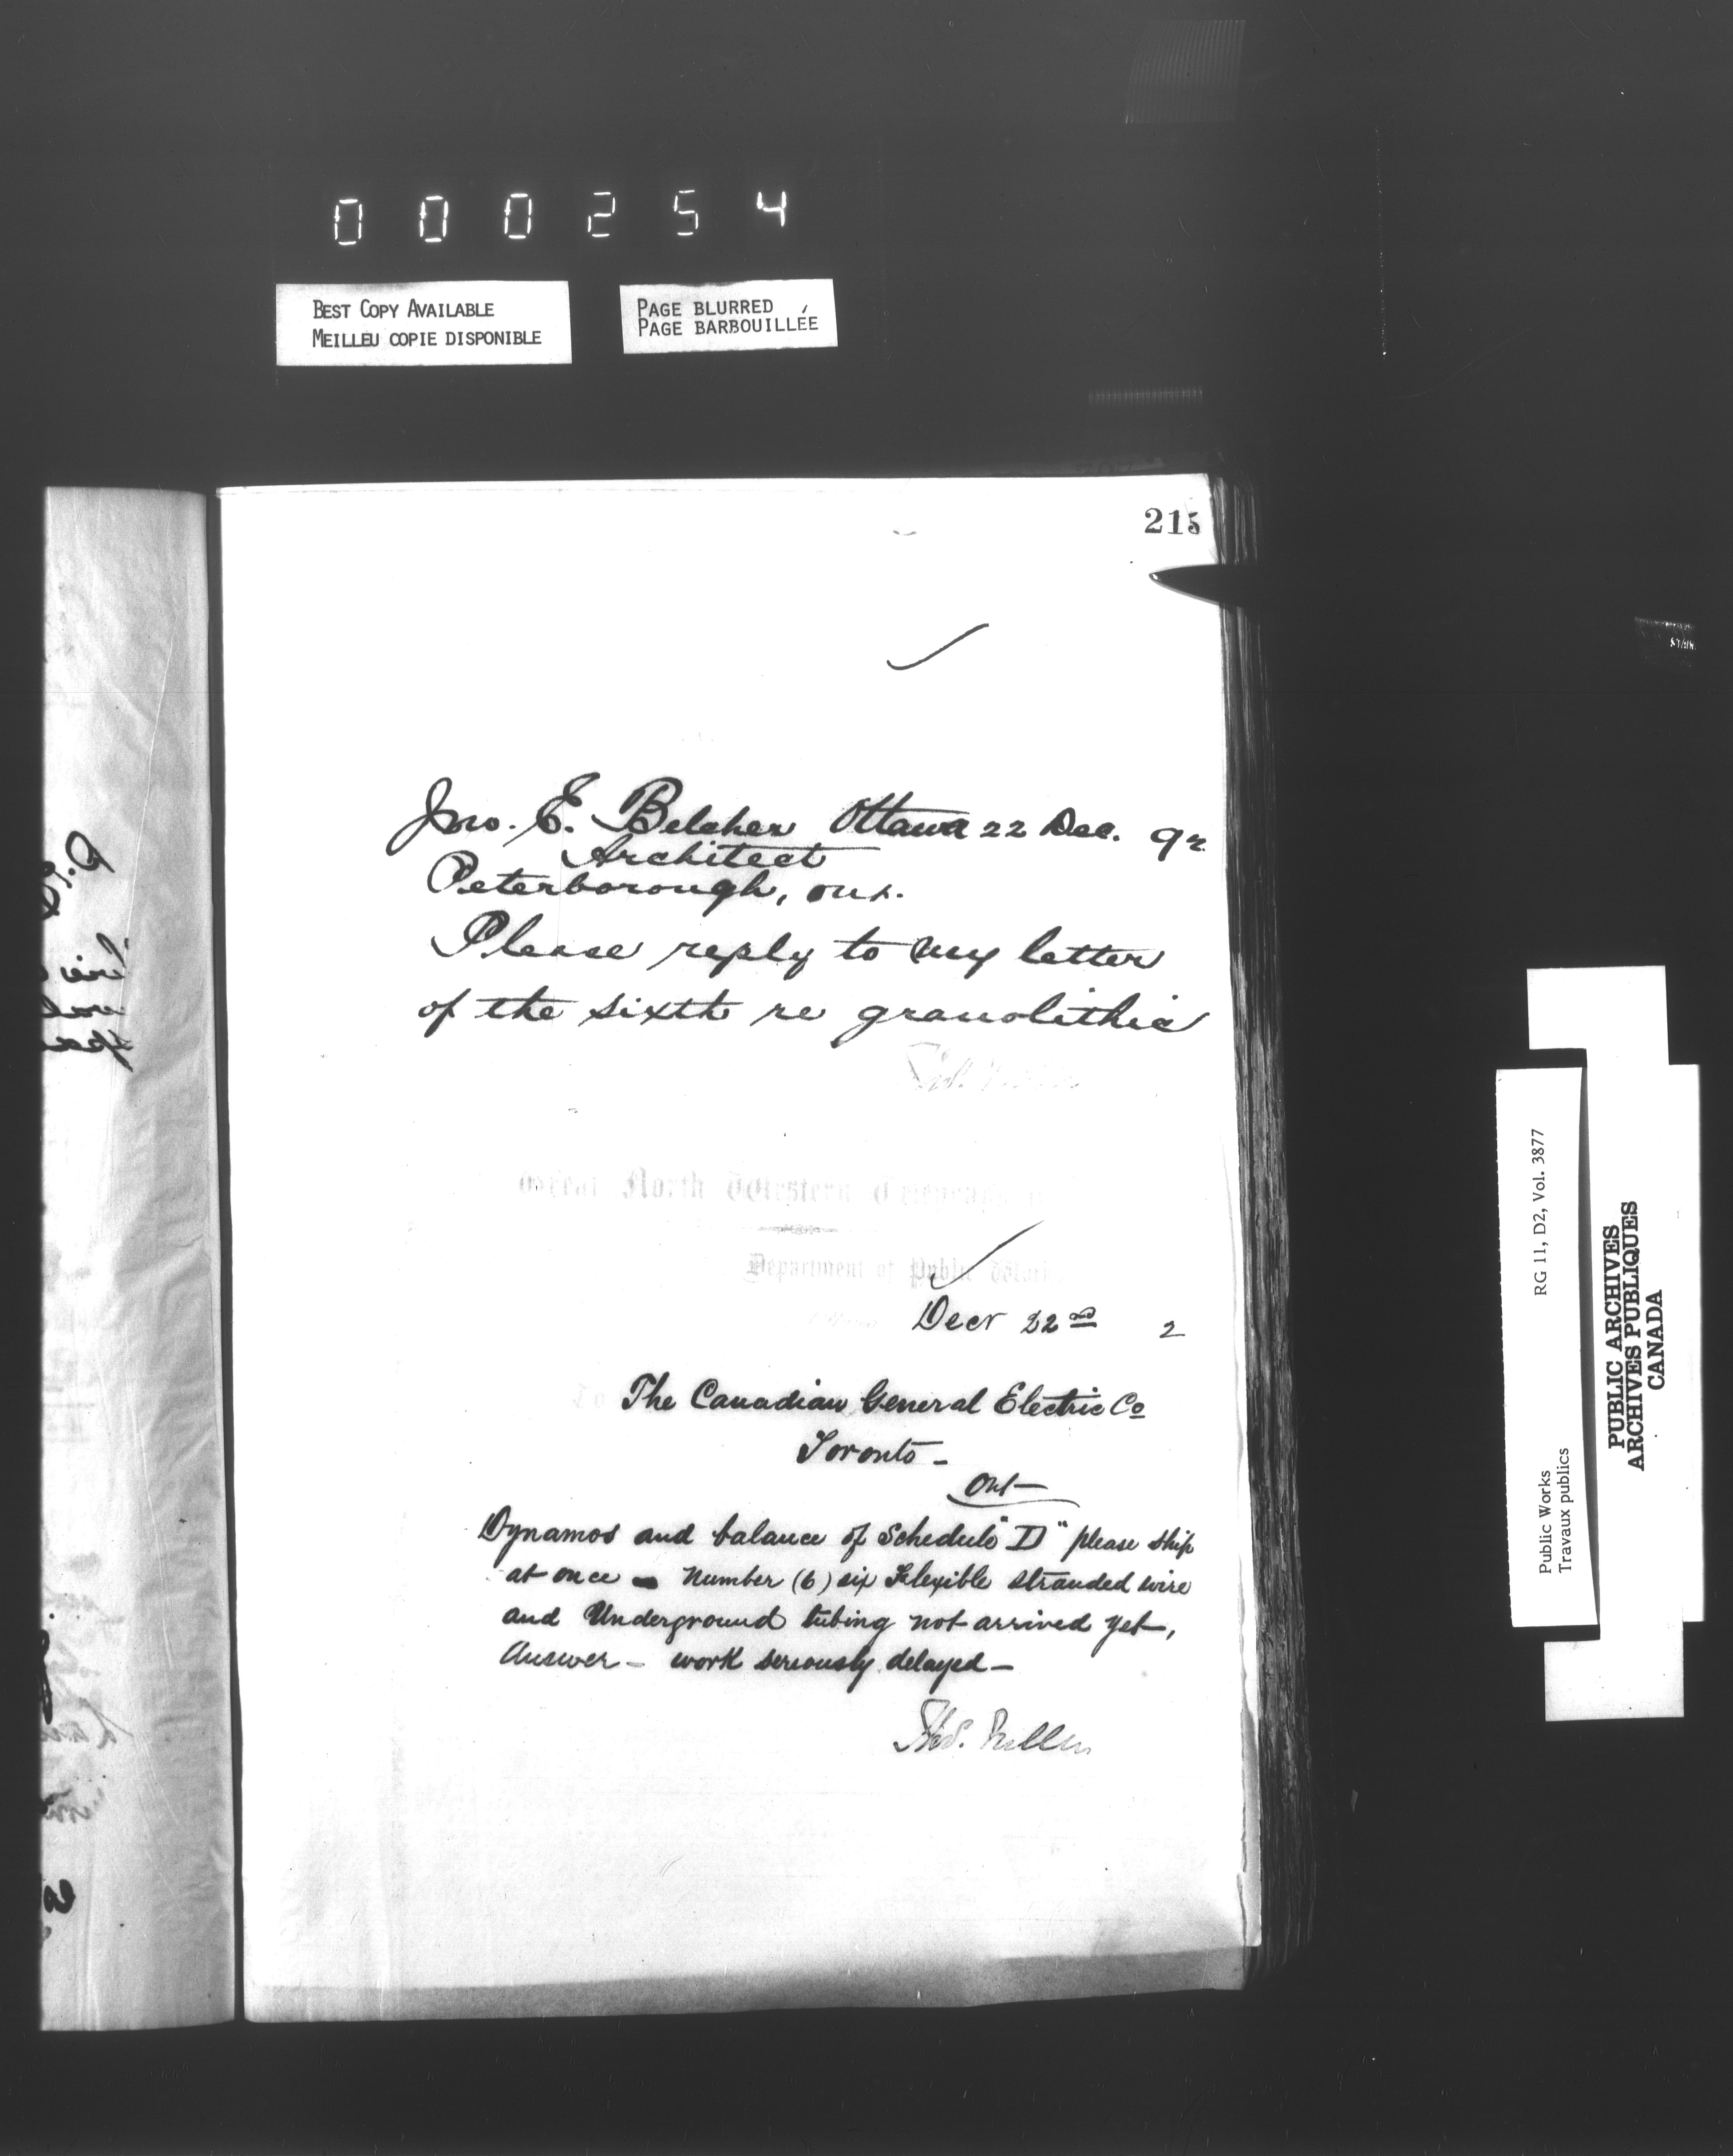 000254
BEST COPY AVAILABLE
MEILLEU COPIE DISPONIBLE
PAGE BLURRED
PAGE BARBOUILLÉE
215
Jno. E. Belcher Ottawa 22 Dec. 92
Architect
Peterborough, Ont.
Please reply to my letter
of the sixth re granolithic
Great North Western Telegraph
Department of Public Works
Decr 22nd 2
The Canadian General Electric Co
Toronto -
Ont
Dynamos and balance of Schedule "D" please ship
at once - Number (6) six Flexible stranded wire
and Underground tubing not arrived yet,
Answer - work seriously delayed -
Public Works
Travaux publics
RG 11, D2, Vol. 3877
PUBLIC ARCHIVES
ARCHIVES PUBLIQUES
CANADA